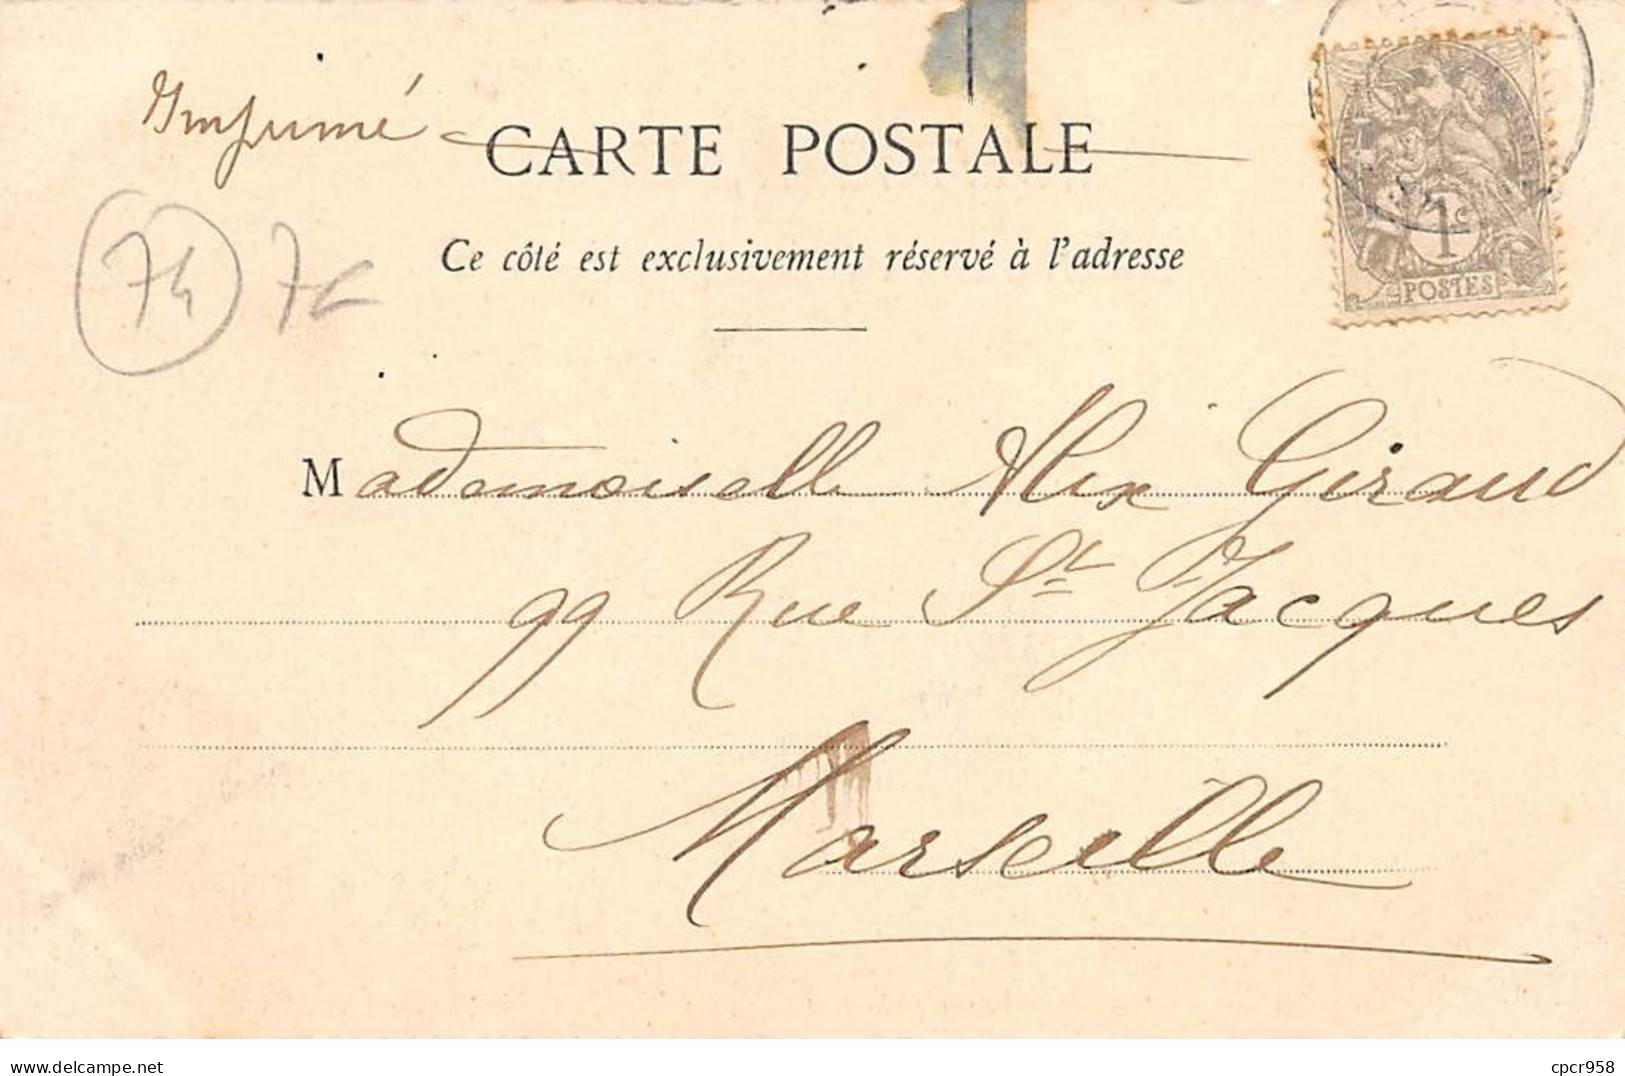 Imprimé
CARTE POSTALE
Ce côté est exclusivement réservé à l'adresse
1c
POSTES
74 7€
Mademoiselle Alix Giraud
99 Rue St Jacques
Marseille
www.delcampe.net
cpcr958